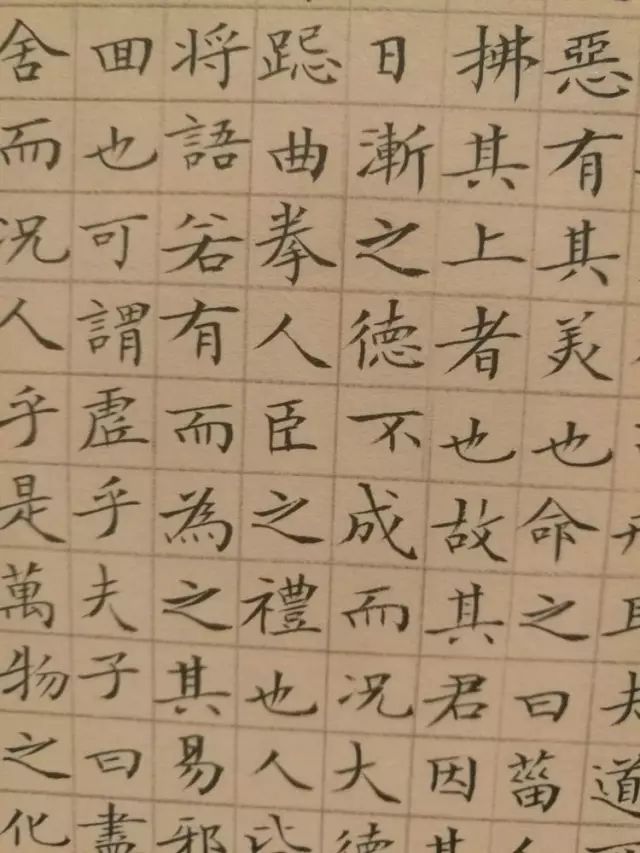 道
惡有其美也命之曰菑人
拂其上者也故其君因其
日漸之徳不成而况大徳
跽曲拳人臣之禮也人皆
将語若有而為之其易邪
囬也可謂虚乎夫子曰盡
舍而况人乎是萬物之化